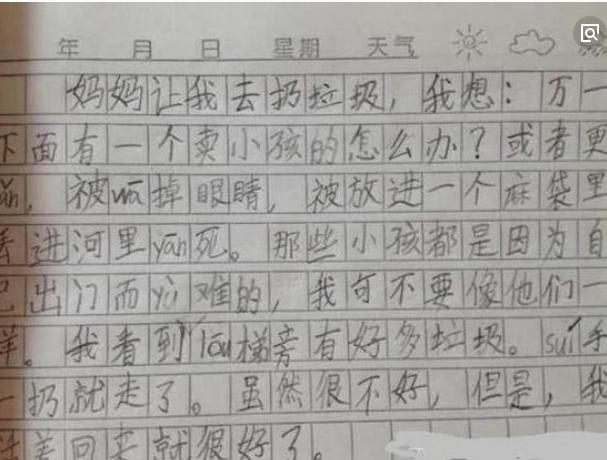 年 月 日 星期 天气
妈妈让我去扔垃圾，我想：万一
下面有一个卖小孩的怎么办？或者更
，被wā掉眼睛，被放进一个麻袋里
丢进河里yān死。那些小孩都是因为自
己出门而yù难的，我可不要像他们一
样。我看到lóu梯旁有好多垃圾。suí手
一扔就走了。虽然很不好，但是，我
活着回来就很好了。